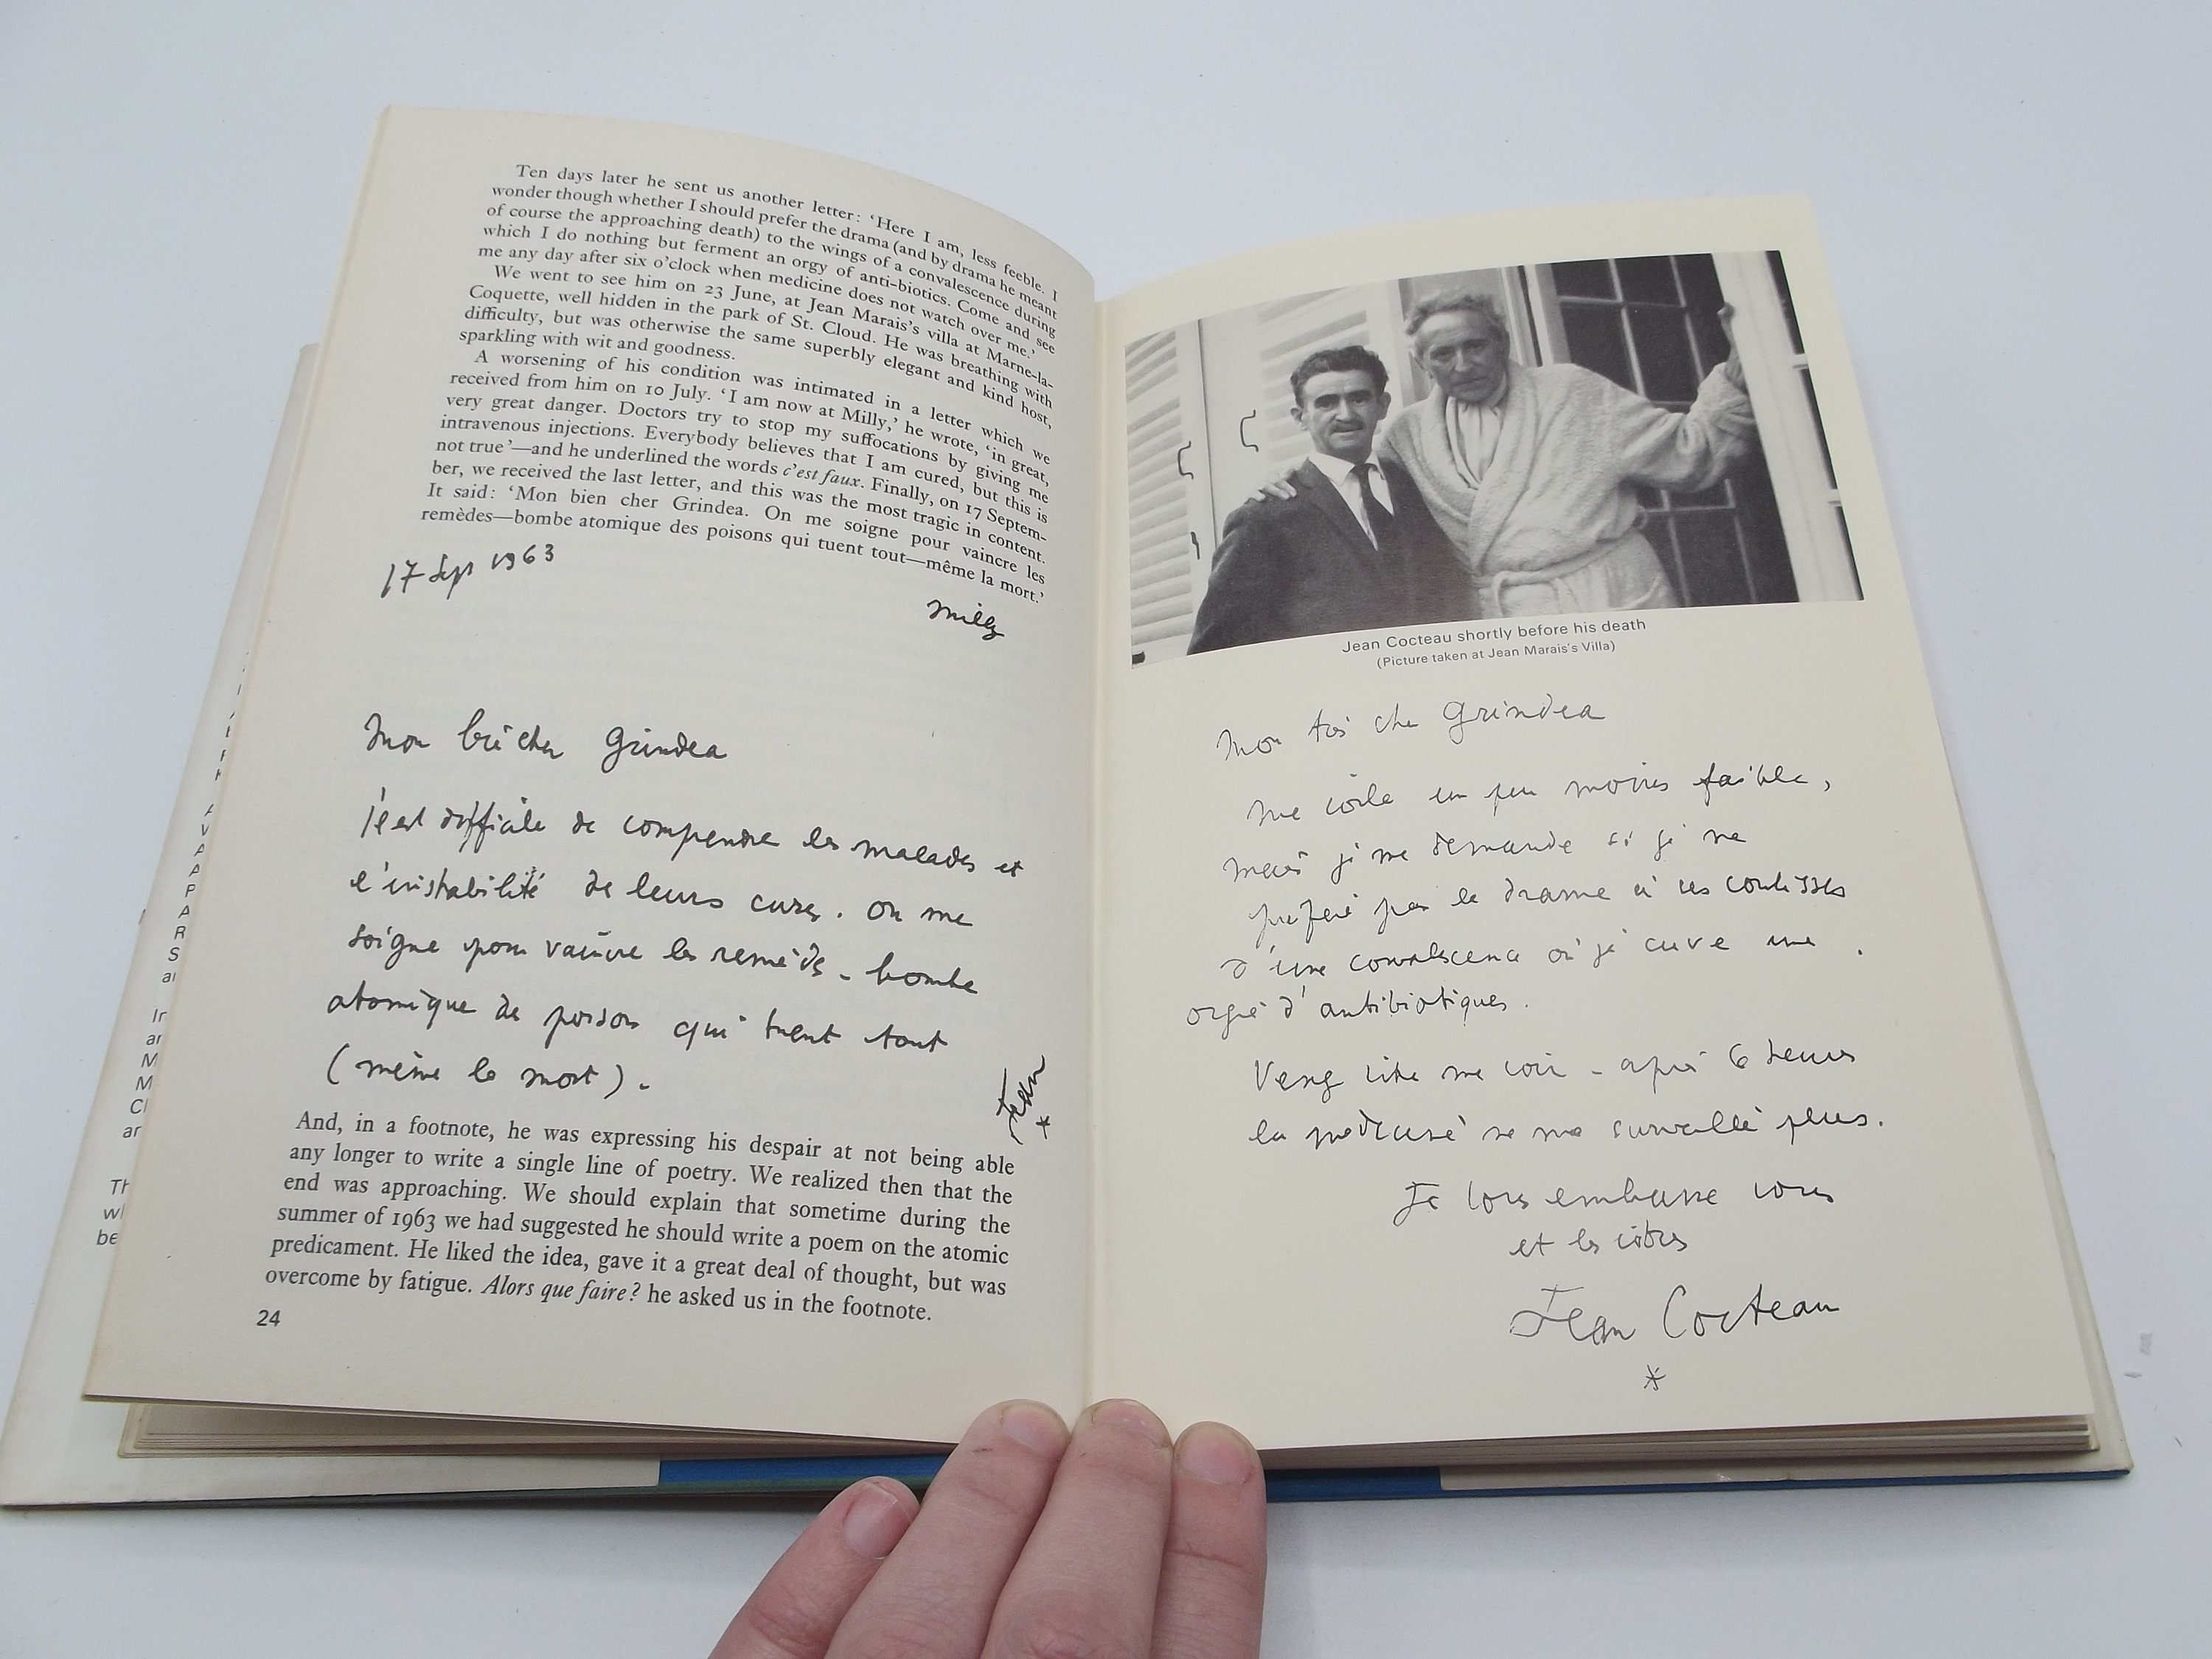 Ten days later he sent us another letter: ‘Here I am, less feeble. I
wonder though whether I should prefer the drama (and by drama he meant
of course the approaching death) to the wings of a convalescence during
which I do nothing but ferment an orgy of anti-biotics. Come and see
me any day after six o’clock when medicine does not watch over me.’
We went to see him on 23 June, at Jean Marais’s villa at Marne-la-
Coquette, well hidden in the park of St. Cloud. He was breathing with
difficulty, but was otherwise the same superbly elegant and kind host,
sparkling with wit and goodness.
A worsening of his condition was intimated in a letter which we
received from him on 10 July. ‘I am now at Milly,’ he wrote, ‘in great,
very great danger. Doctors try to stop my suffocations by giving me
intravenous injections. Everybody believes that I am cured, but this is
not true’—and he underlined the words c’est faux. Finally, on 17 Septem-
ber, we received the last letter, and this was the most tragic in content.
It said: ‘Mon bien cher Grindea. On me soigne pour vaincre les
remèdes—bombe atomique des poisons qui tuent tout—même la mort.’
17 Sept 1963
Milly
Mon bien cher Grindea
il est difficile de comprendre les malades et
l'instabilité de leurs cures. On me
soigne pour vaincre les remèdes - bombe
atomique des poisons qui tuent tout
(même la mort).
Jean
*
And, in a footnote, he was expressing his despair at not being able
any longer to write a single line of poetry. We realized then that the
end was approaching. We should explain that sometime during the
summer of 1963 we had suggested he should write a poem on the atomic
predicament. He liked the idea, gave it a great deal of thought, but was
overcome by fatigue. Alors que faire? he asked us in the footnote.
24
Jean Cocteau shortly before his death
(Picture taken at Jean Marais's Villa)
Mon très cher Grindea
Me voilà un peu moins faible,
mais je me demande si je ne
préfère pas le drame à ces coulisses
d'une convalescence où je cuve une
orgie d'antibiotiques.
Venez vite me voir - après 6 heures
la médecine ne me surveille plus.
Je vous embrasse vous
et les vôtres
Jean Cocteau
*